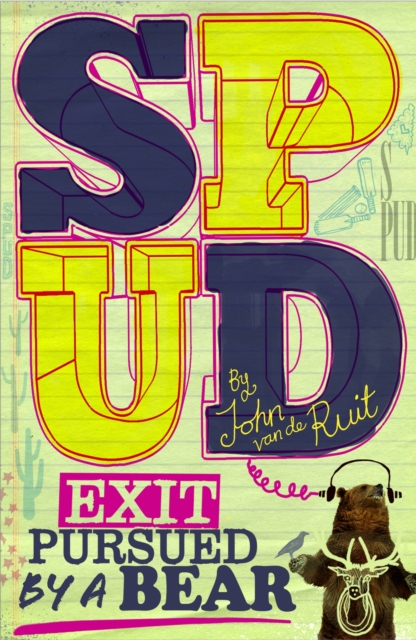 SP
UD
S
PUD
By
John
van de Ruit
EXIT
PURSUED
BY A BEAR